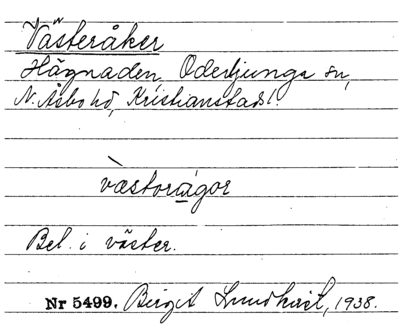 Västeråker
Hägnaden Oderljunga sn,
N. Åsbo hd, Kristianstads l.
vàstorágor
Bel. i väster.
Nr 5499. Birgit Lundkvist, 1938.